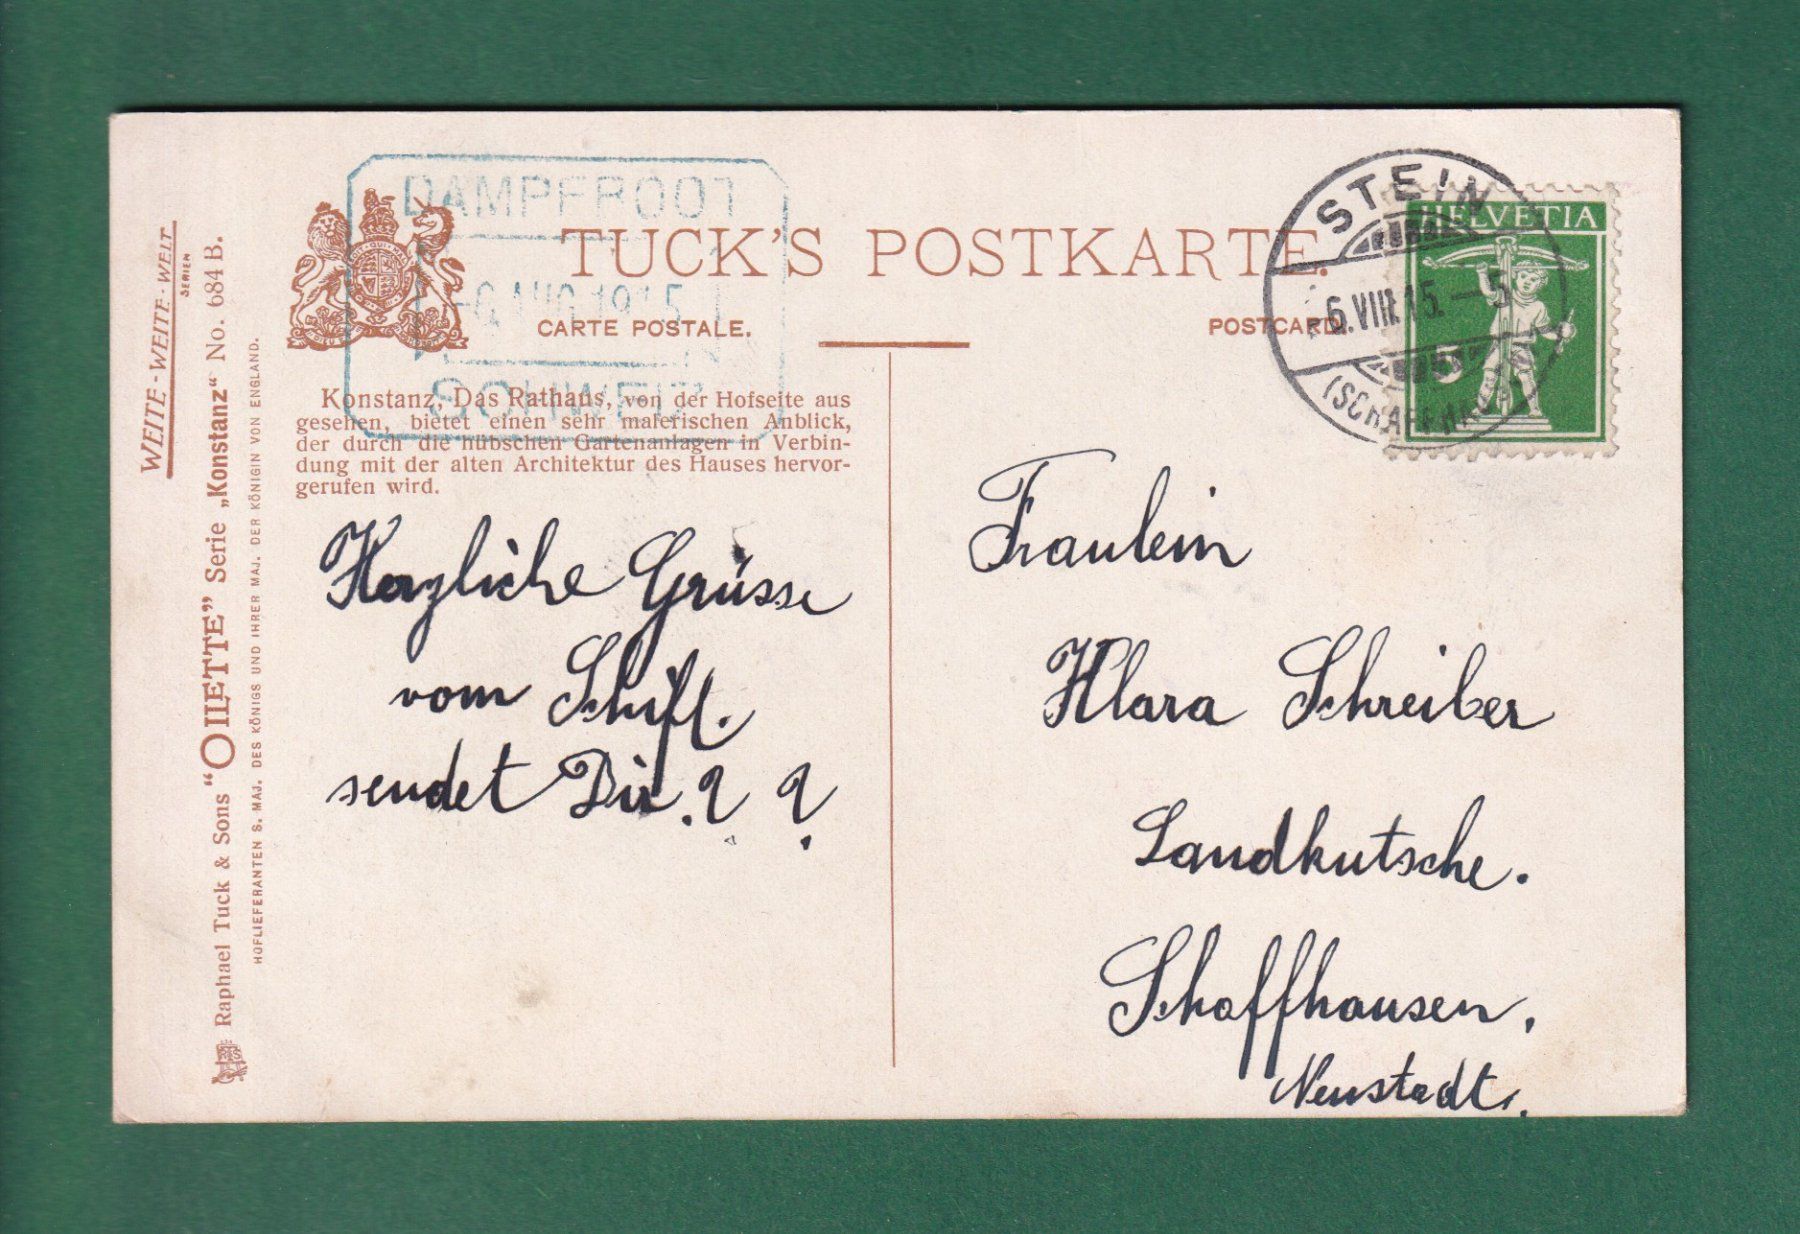 WEITE-WEITE-WELT
SERIEN
Raphael Tuck & Sons “OILETTE” Serie „Konstanz“ No. 684 B.
HOFLIEFERANTEN S. MAJ. DES KÖNIGS UND IHRER MAJ. DER KÖNIGIN VON ENGLAND.
DAMPFBOOT
-6 AUG 1915
SCHWEIZ
TUCK'S POSTKARTE.
CARTE POSTALE.
POSTCARD.
STEIN
-6.VIII.15.-5
(SCHAFFHAUSEN)
HELVETIA
Konstanz, Das Rathaus, von der Hofseite aus
gesehen, bietet einen sehr malerischen Anblick,
der durch die hübschen Gartenanlagen in Verbin-
dung mit der alten Architektur des Hauses hervor-
gerufen wird.
Herzliche Grüsse
vom Schift.
sendet Dir. ? ?
Fraulein
Klara Schreiber
Landkutsche.
Schaffhausen,
Neustadt.